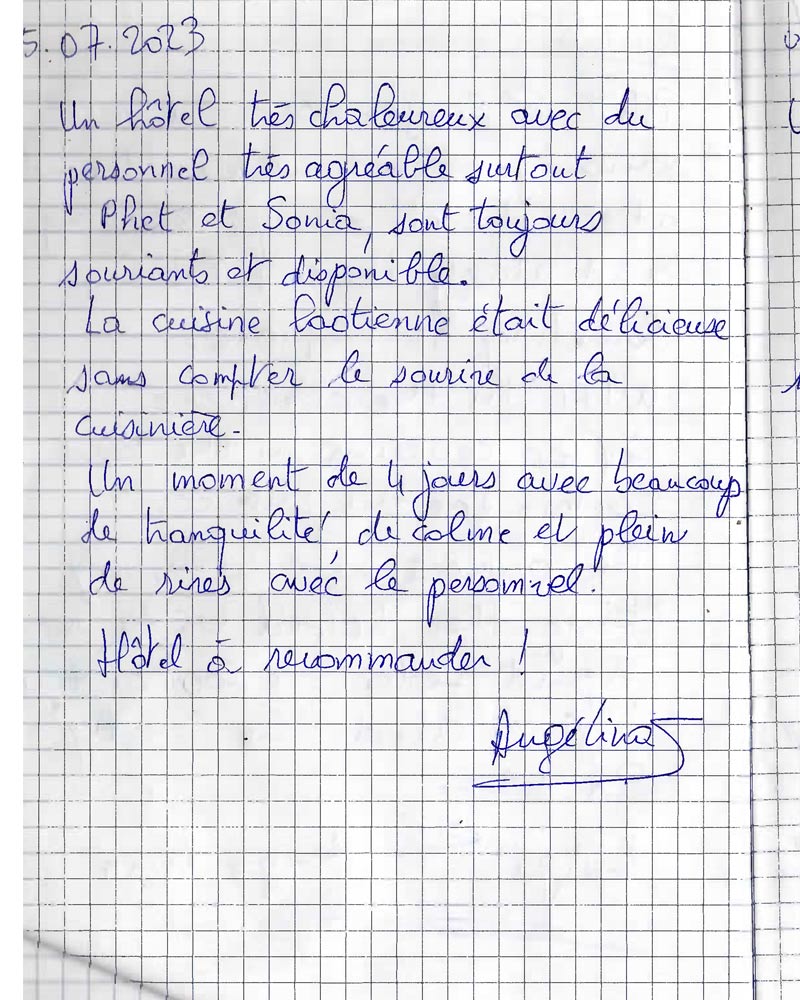 5.07.2023
Un hôtel très chaleureux avec du
personnel très agréable surtout
Phet et Sonia, sont toujours
souriants et disponible.
La cuisine laotienne était délicieuse
sans compter le sourire de la
cuisinière.
Un moment de 4 jours avec beaucoup
de tranquilité, de calme et plein
de rires avec le personnel.
Hôtel à recommander !
Angélina